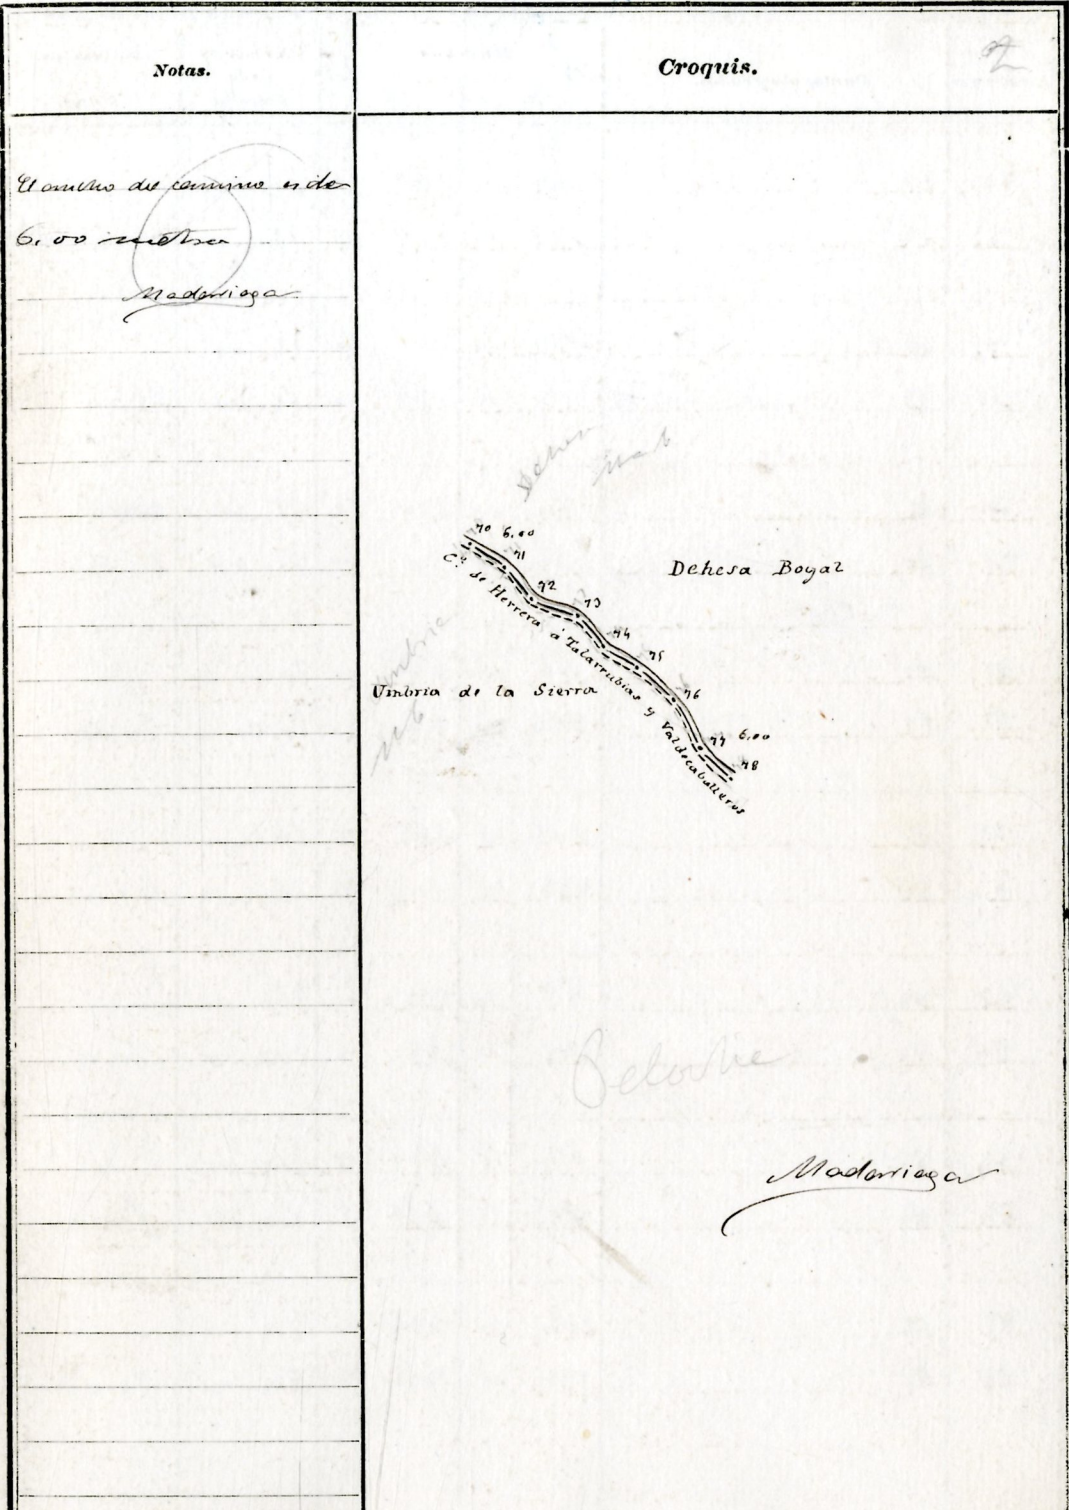 Notas.
Croquis.
2
El ancho del camino es de
6.00 metros
Madariaga
70 6.00
71
72
73
74
75
76
77 6.00
78
Cº de Herrera á Talarrubias y Valdecaballeros
Dehesa Boyal
Umbria de la Sierra
Umbria
Madariaga